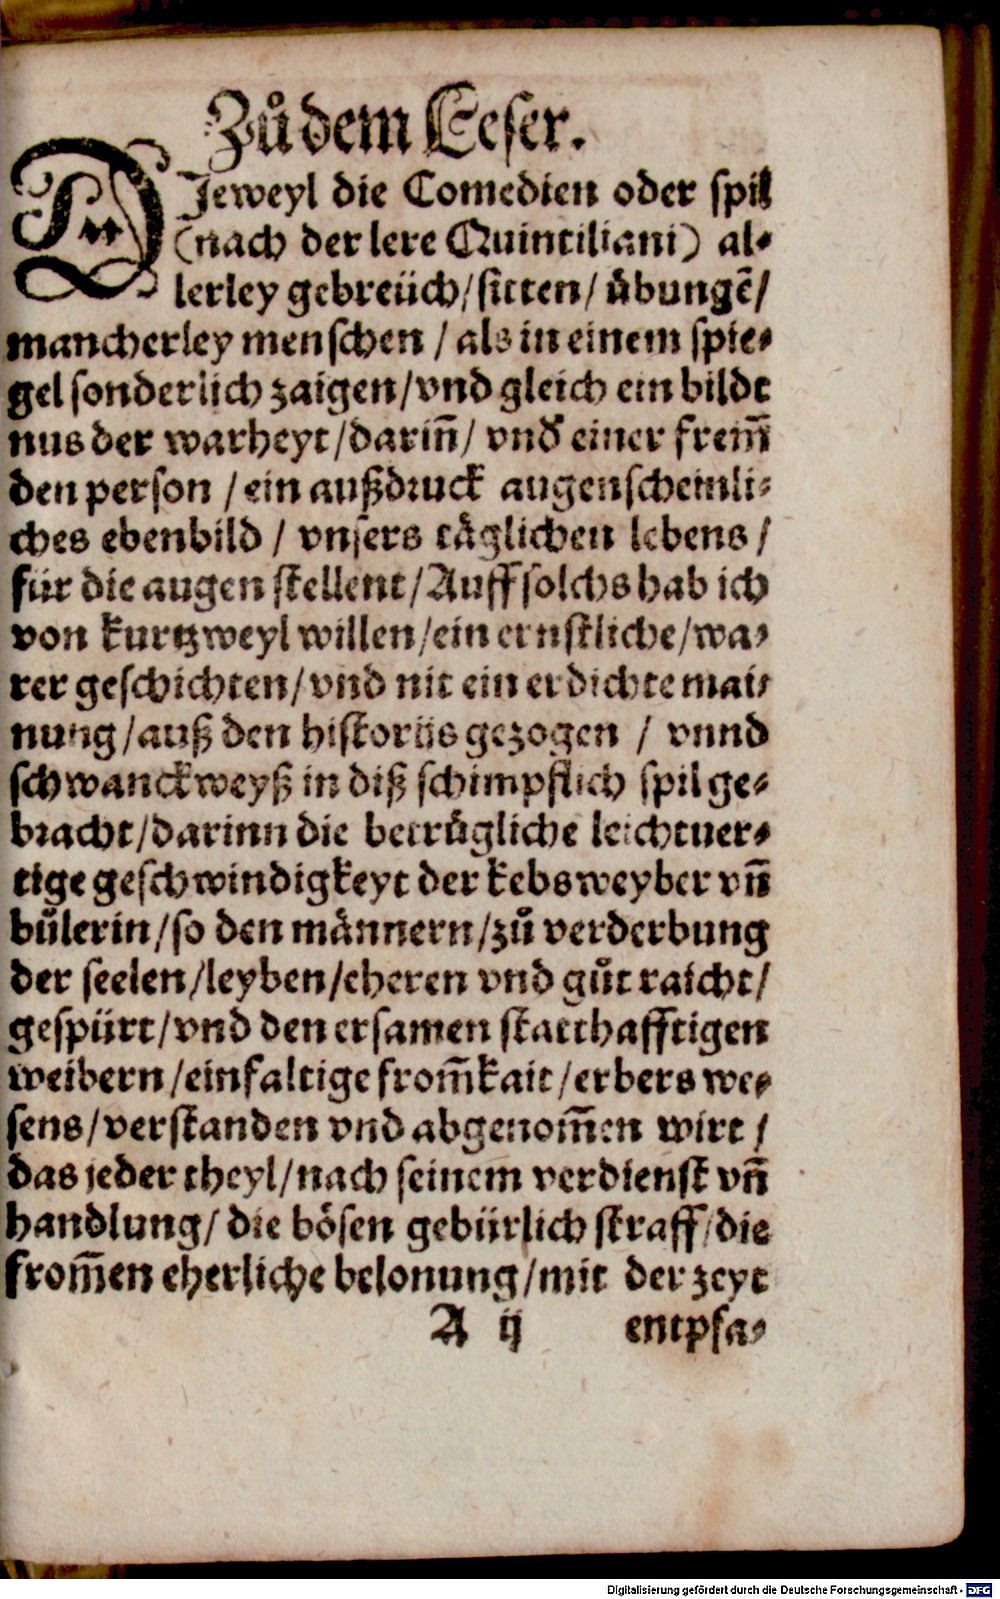 Zů dem Leser.
DJeweyl die Comedien oder spil
(nach der lere Quintiliani) al⸗
lerley gebreüch/sitten/ übungē/
mancherley menschen / als in einem spie⸗
gel sonderlich zaigen/vnd gleich ein bildt
nus der warheyt/dariñ/ vnd einer frem̃
den person / ein außdruck augenscheinli⸗
ches ebenbild / vnsers täglichen lebens /
für die augen stellent/Auff solchs hab ich
von kurtzweyl willen/ein ernstliche/wa⸗
rer geschichten/vnd nit ein erdichte mai⸗
nung/auß den historijs gezogen / vnnd
schwanckweyß in diß schimpflich spil ge⸗
bracht/darinn die betrůgliche leichtuer⸗
tige geschwindigkeyt der kebsweyber vñ
bůlerin/so den männern/zů verderbung
der seelen/leyben/eheren vnd gůt raicht/
gespürt/vnd den ersamen statthafftigen
weibern/einfaltige from̃kait/erbers we⸗
sens/verstanden vnd abgenom̃en wirt /
das jeder theyl/nach seinem verdienst vñ
handlung/ die bösen gebürlich straff/die
from̃en eherliche belonung/mit der zeyt
A ij entpfa⸗
Digitalisierung gefördert durch die Deutsche Forschungsgemeinschaft - DFG